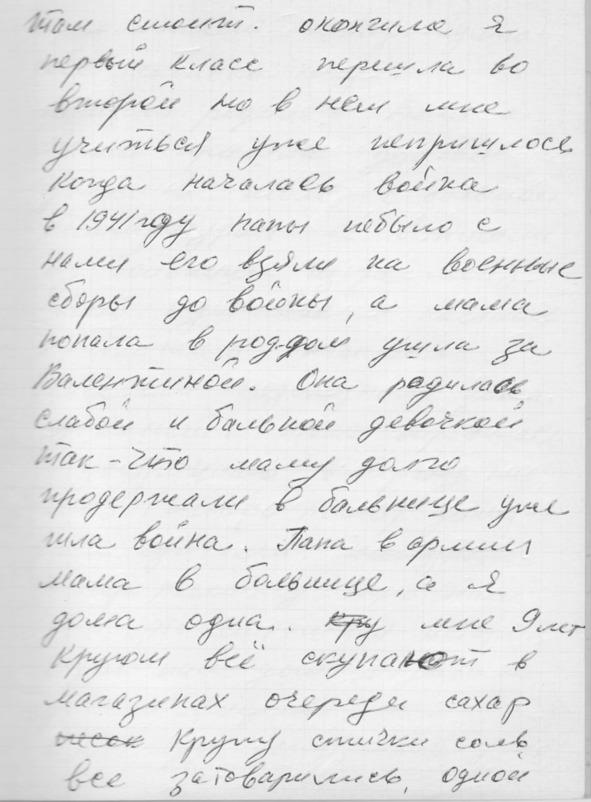 там стоит. окончила я
первый класс перешла во
второй но в нем мне
учиться уже непришлось
когда началась война
в 1941 году папы небыло с
нами его взяли на военные
сборы до войны, а мама
попала в род-дом ушла за
Валентиной. Она родилась
слабой и бальной девочкой
так-что маму долго
продержали в бальнице уже
шла война. Папа в армии
мама в больнице, а я
дома одна. мне 9 лет
кругом всё скупают в
магазинах очереди сахар
песок крупу спички соль
все затоварились, одной